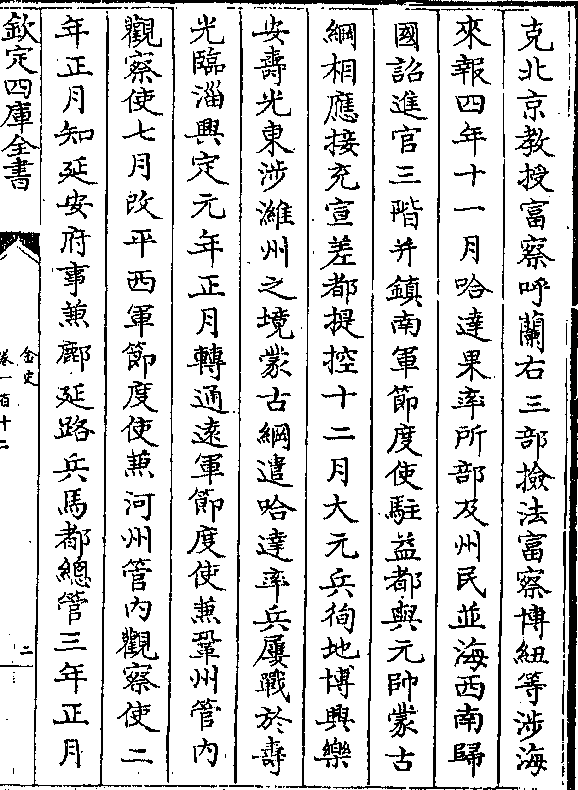 克北京教授富察呼蘭右三部撿法富察博紐等涉海
來報四年十一月哈達果率所部及州民並海西南歸
國詔進官三階并鎮南軍節度使駐益都與元帥蒙古
綱相應接充宣差都提控十二月大元兵徇地博興樂
安壽光東涉濰州之境蒙古綱遣哈達率兵屢戰於壽
光臨淄興定元年正月轉通遠軍節度使兼鞏州管内
觀察使七月改平西軍節度使兼河州管内觀察使二
年正月知延安府事兼鄜延路兵馬都總管三年正月
欽定四庫全書
金史
卷一百十二
二